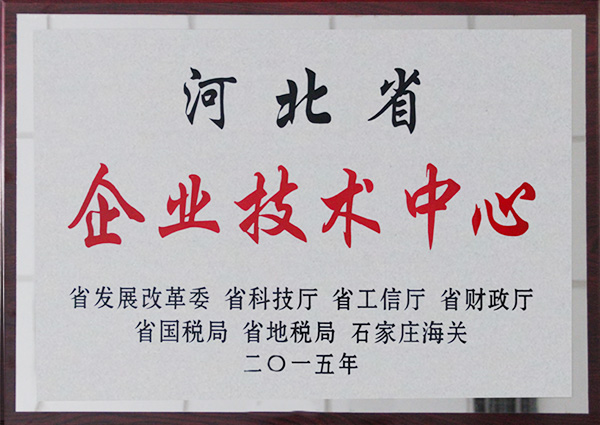 河北省
企业技术中心
省发展改革委 省科技厅 省工信厅 省财政厅
省国税局 省地税局 石家庄海关
二〇一五年